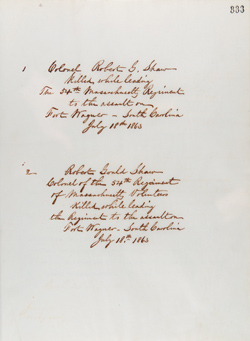 333
1 Colonel Robert G. Shaw
Killed while leading
The 54th Massachusetts Regiment
to the assault on
Fort Wagner - South Carolina
July 18th 1863
2 Robert Gould Shaw
Colonel of the 54th Regiment
of Massachusetts Volunteers
Killed while leading
the Regiment to the assault on
Fort Wagner - South Carolina
July 18th 1863